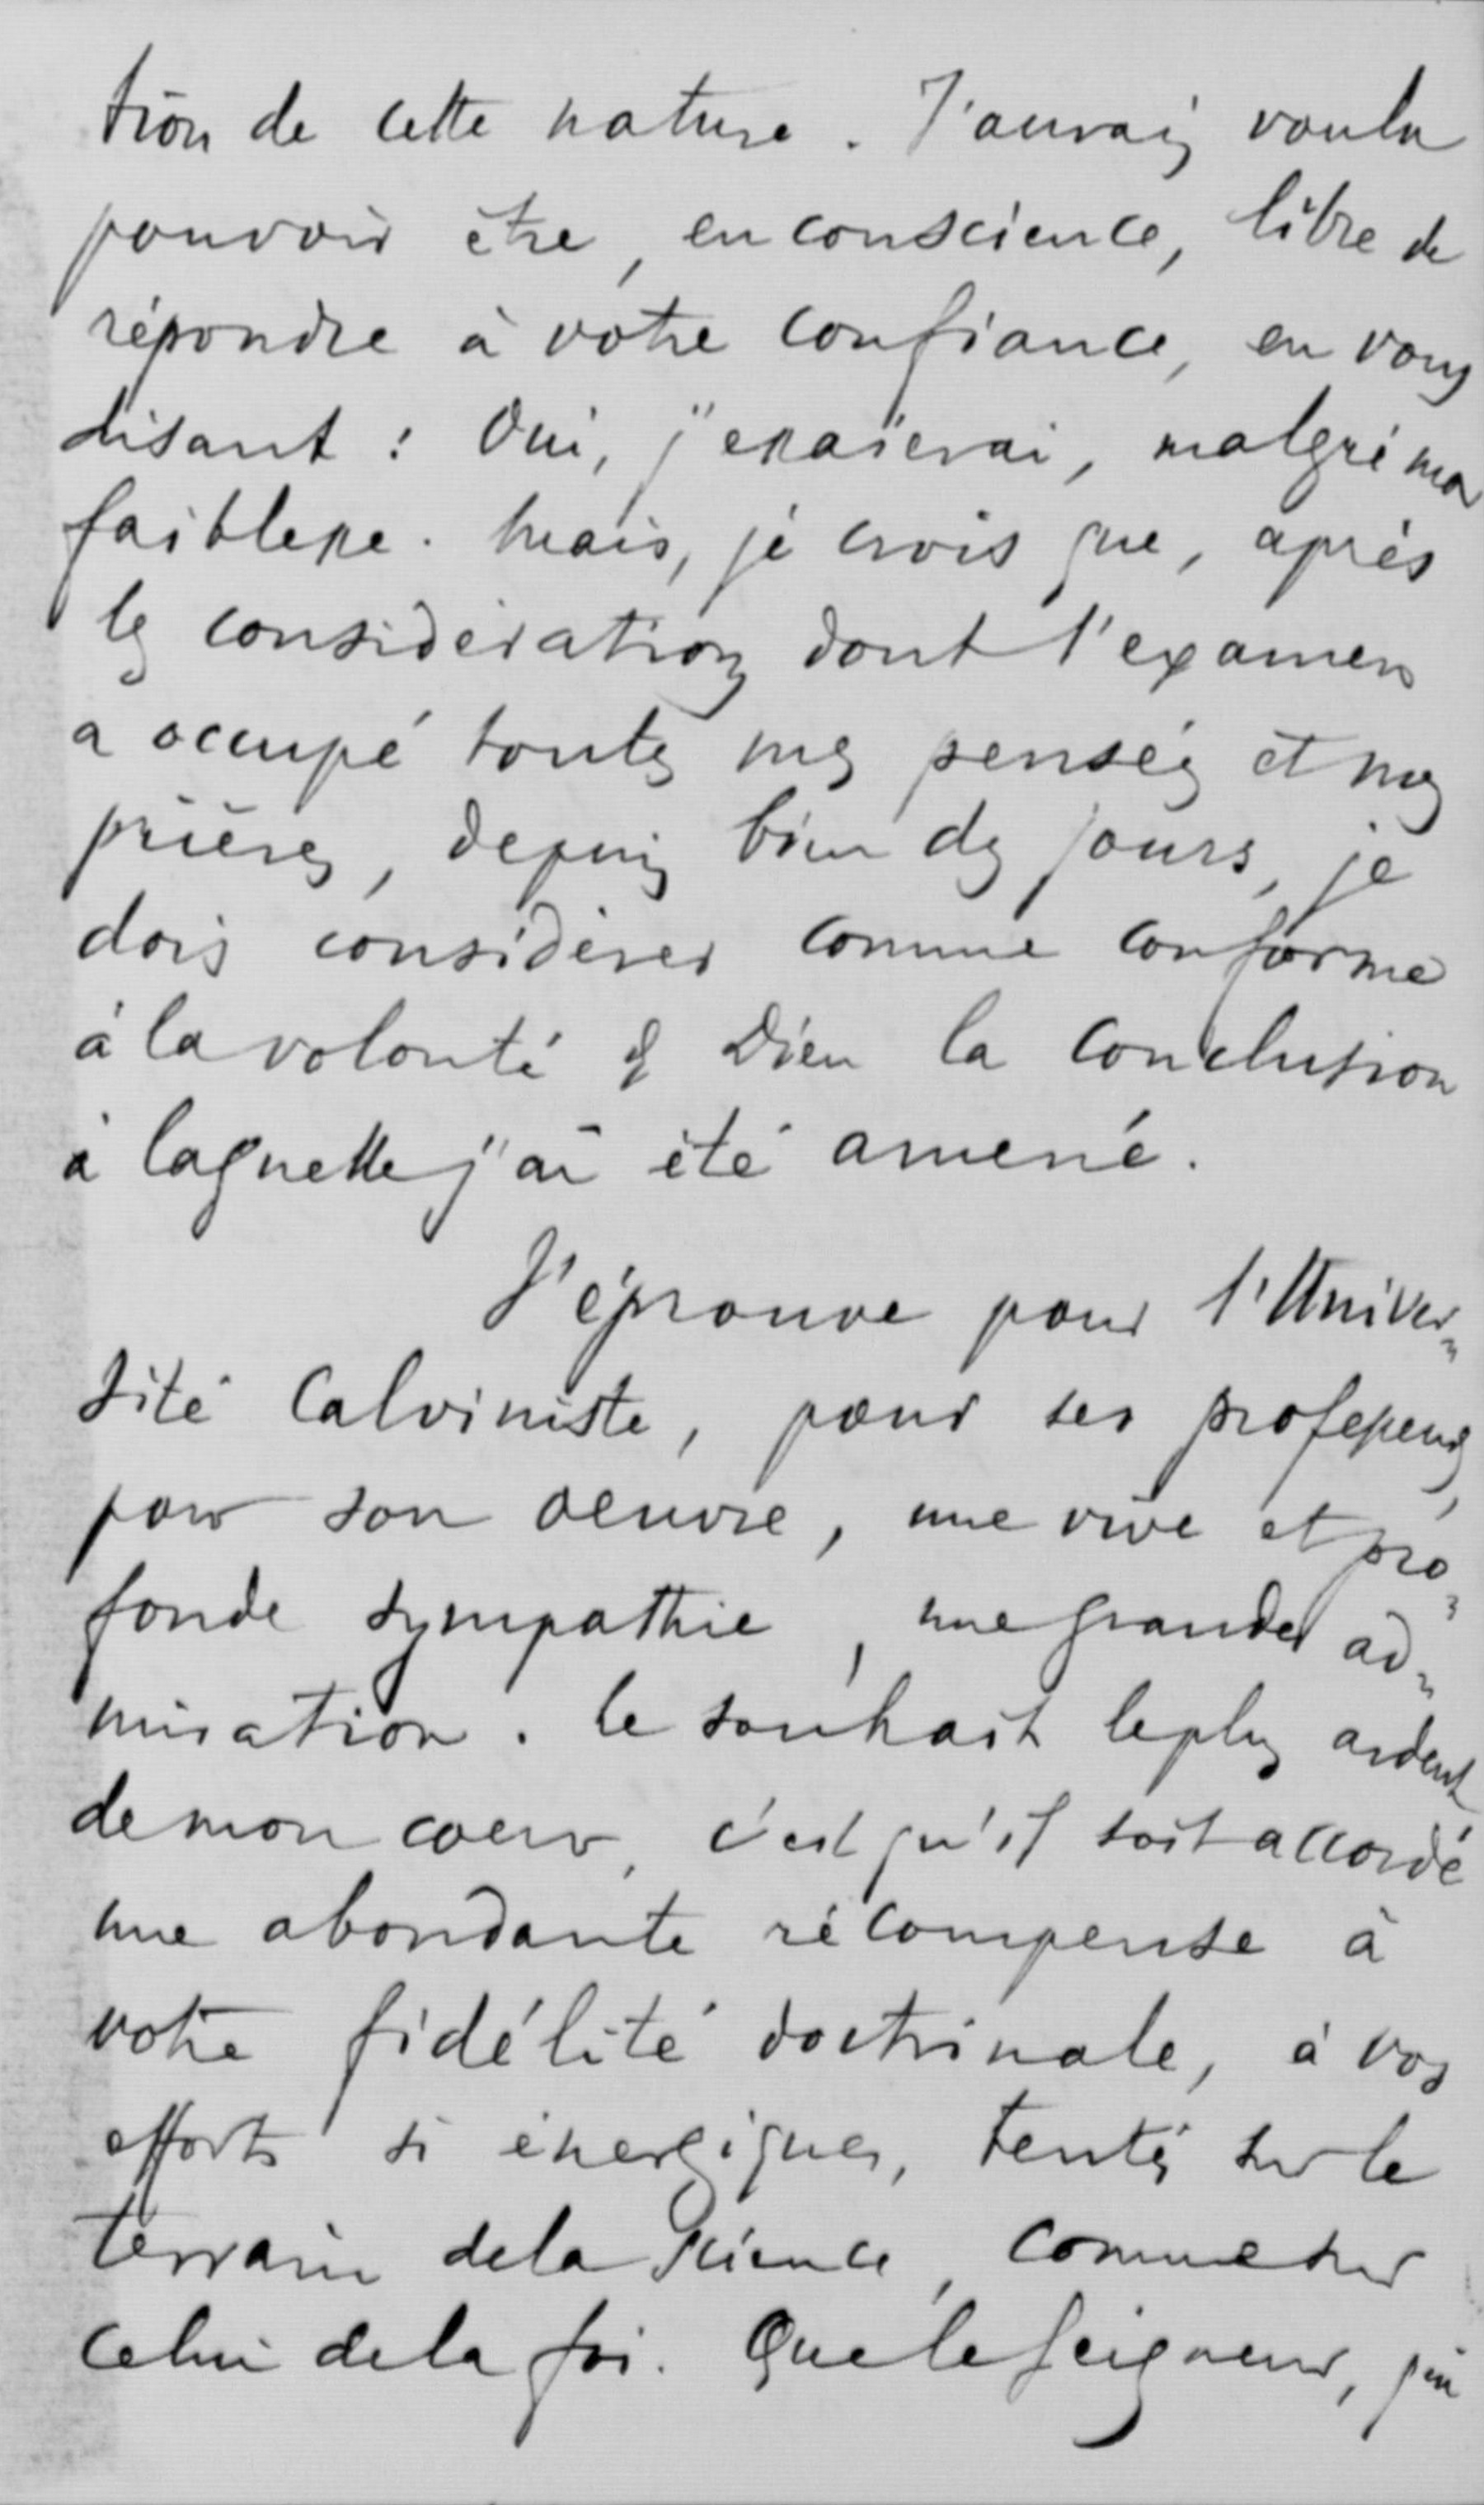 tion de cette nature. J'aurais voulu
pouvoir être, en conscience, libre de
répondre à votre confiance, en vous
disant : Oui, j'essaierai, malgré ma
faiblesse. Mais, je crois que, après
les considérations dont l'examen
a occupé toutes mes pensées et mes
prières, depuis bien des jours, je
dois considérer comme conforme
à la volonté de Dieu la conclusion
à laquelle j'ai été amené.
J'éprouve pour l'Univer-
sité Calviniste, pour ses professeurs,
pour son oeuvre, une vive et pro-
fonde sympathie, une grande ad-
miration. Le souhait le plus ardent
de mon coeur, c'est qu'il soit accordé
une abondante récompense à
votre fidélité doctrinale, à vos
efforts si énergiques, tentés sur le
terrain de la science, comme sur
celui de la foi. Que le Seigneur, qui